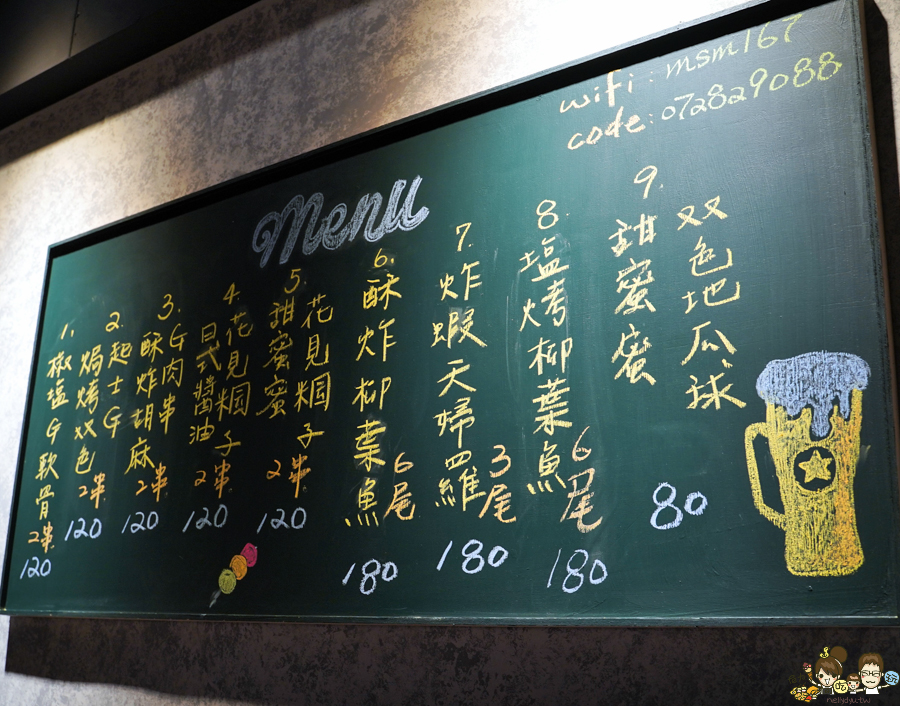 wifi: msm167
code: 072829088
Menu
1.
椒塩G軟骨
2串
120
2.
起士G
焗烤双色
2串
120
3.
G肉串
酥炸胡麻
2串
120
4.
花見糰子
日式醬油
2串
120
5.
花見糰子
甜蜜蜜
2串
120
6.
酥炸柳葉魚
6尾
180
7.
炸蝦天婦羅
3尾
180
8.
塩烤柳葉魚
6尾
180
9.
双色地瓜球
甜蜜蜜
80
吃
玩
nellydyu.tw